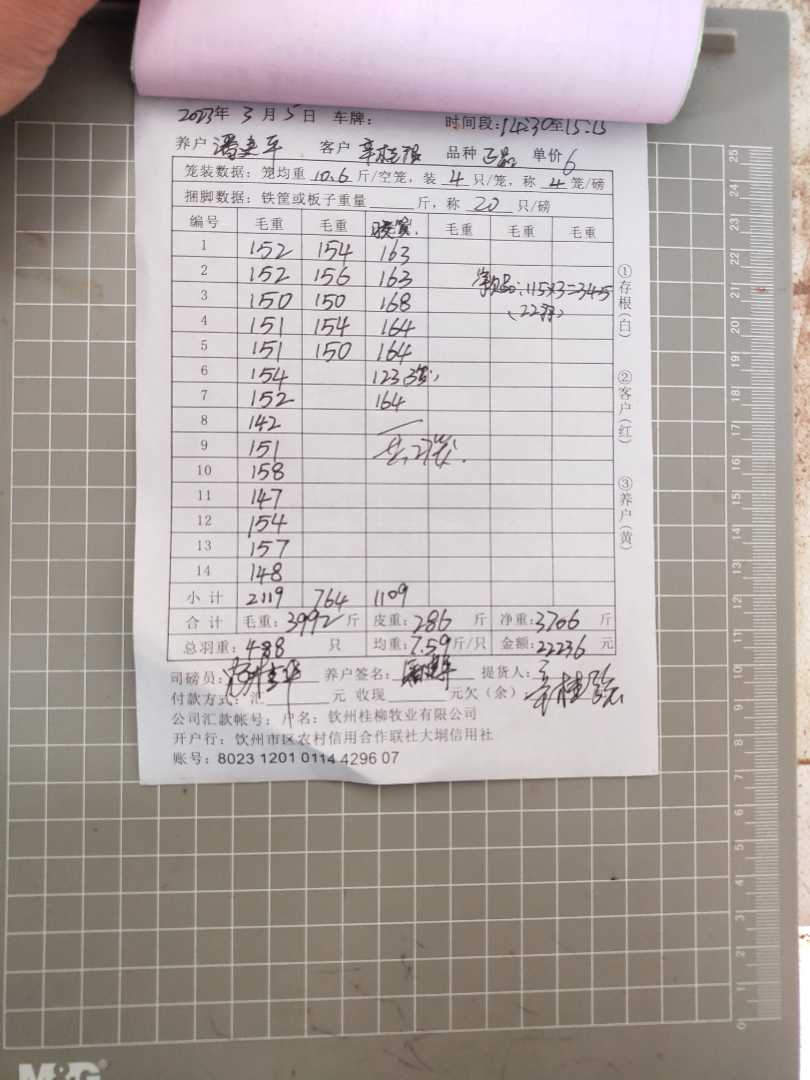 2023年 3 月 5 日 车牌： 时间段：14:30至15:15
养户 潘 平 客户 辛桂 品种 正品 单价 6
笼装数据：笼均重 10.6 斤/空笼，装 4 只/笼，称 4 笼/磅
捆脚数据：铁筐或板子重量 斤，称 20 只/磅
编号 毛重 毛重 毛重 毛重 毛重
1 152 154 163
2 152 156 163 115×3=345
3 150 150 168
4 151 154 164
5 151 150 164
6 154 123
7 152 164
8 142
9 151
10 158
11 147
12 154
13 157
14 148
小计 2119 764 1109
合计 毛重：3992 斤 皮重：286 斤 净重：3706 斤
总羽重：488 只 均重：7.59 斤/只 金额：22236 元
司磅员： 养户签名： 提货人：
付款方式：汇 元 收现 元欠（余）
公司汇款帐号：户名：钦州桂柳牧业有限公司
开户行：钦州市区农村信用合作联社大垌信用社
账号：8023 1201 0114 4296 07
①存根（白）
②客户（红）
③养户（黄）
25
24
23
22
21
20
19
18
17
16
15
14
13
12
11
10
9
8
7
6
5
4
3
2
1
0
M&G